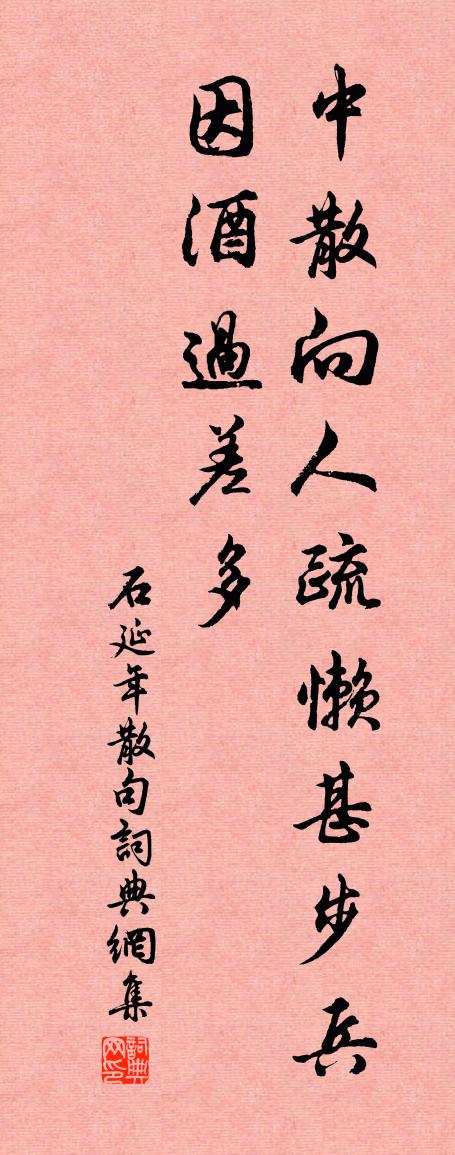 中散向人疏懶甚步兵
因酒過差多
石延年散句詞典網集
詞典网印